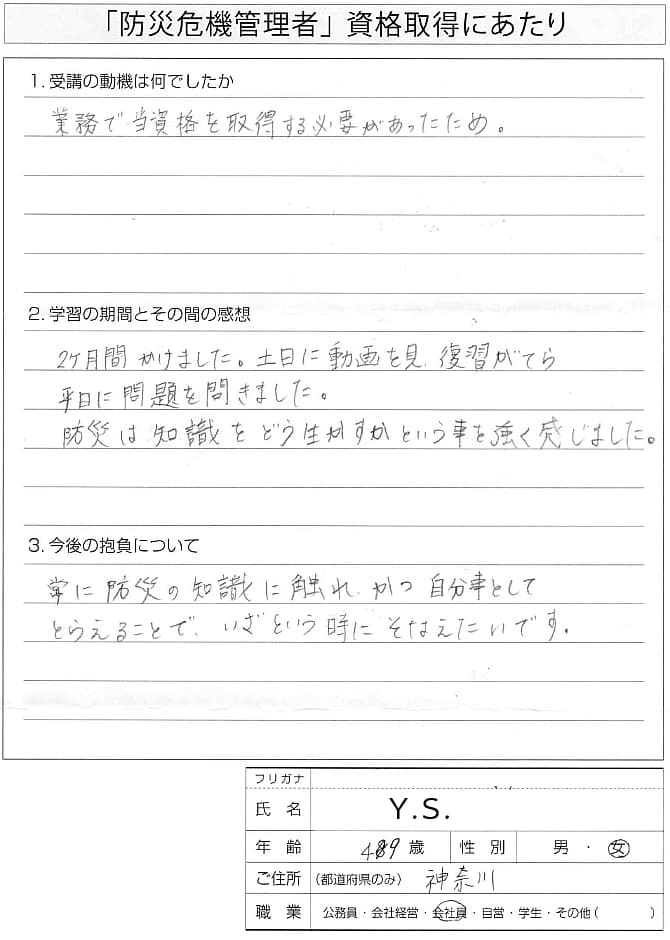 「防災危機管理者」資格取得にあたり
1. 受講の動機は何でしたか
業務で当資格を取得する必要があったため。
2. 学習の期間とその間の感想
2ヶ月間かけました。土日に動画を見、復習がてら
平日に問題を問きました。
防災は知識をどう生かすかという事を強く感じました。
3. 今後の抱負について
常に防災の知識に触れ、かつ自分事として
とらえることで、いざという時にそなえたいです。
フリガナ
氏 名 Y.S.
年 齢 歳 性 別 男 ・ 女
ご住所 (都道府県のみ) 神奈川
職 業 公務員・会社経営・会社員・自営・学生・その他( )